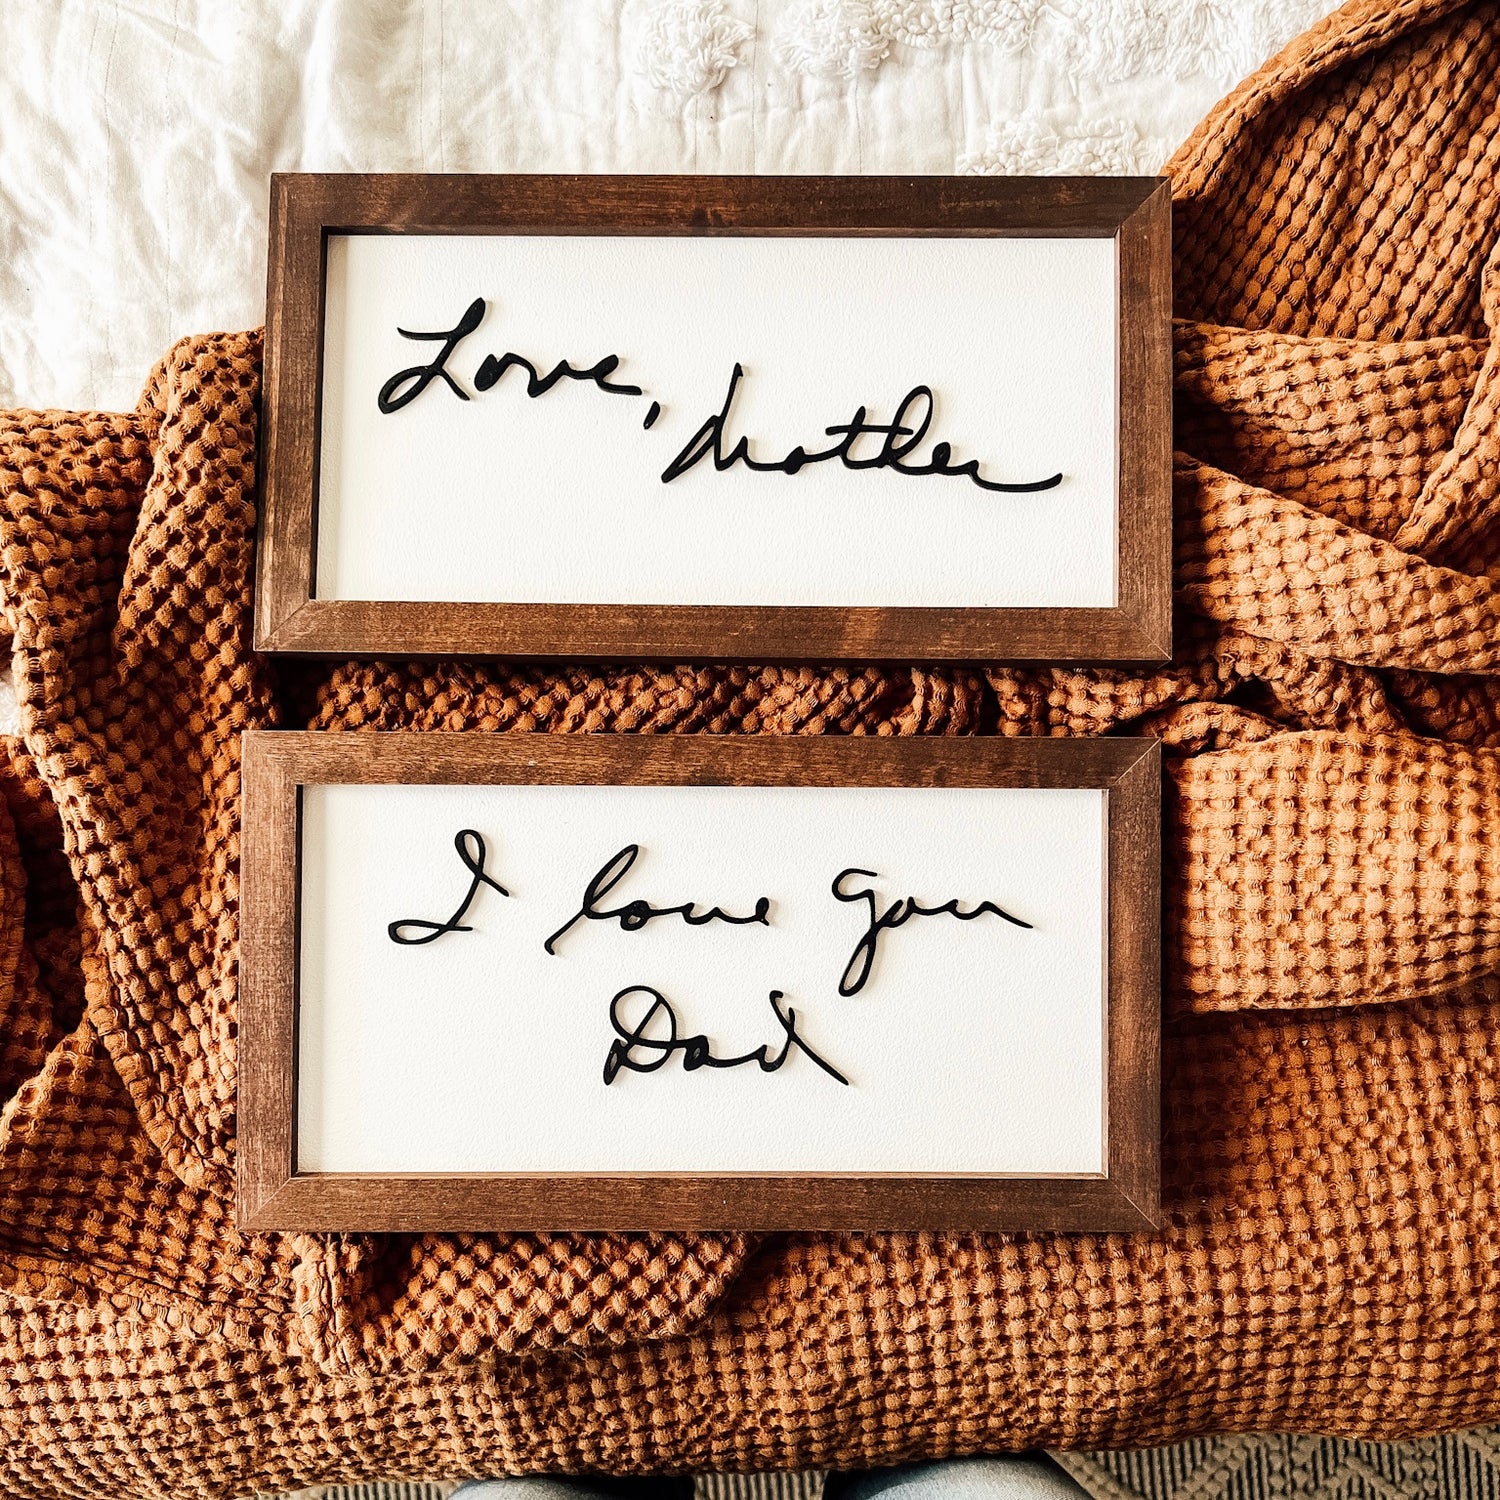 Love, Mother
I love you
Dad